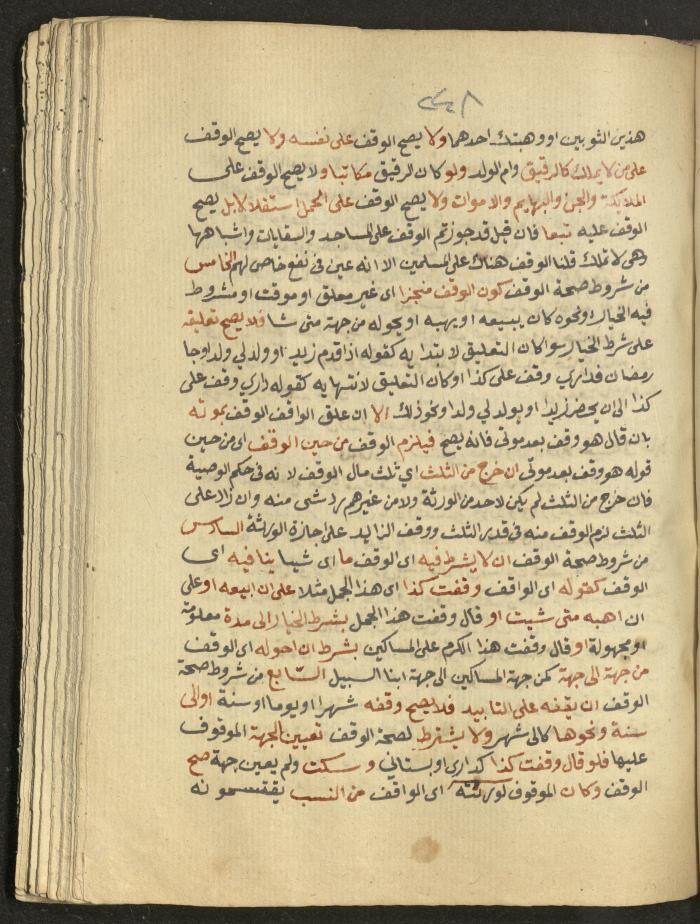 ٢٤٨
هذين الثوبين او وهبتك احدهما ولا يصح الوقف على نفسه ولا يصح الوقف
على من لا يملك كالرقيق وام الولد ولو كان الرقيق مكاتبا ولا يصح الوقف على
الملايكة والجن والبهايم والاموات ولا يصح الوقف على الحمل استقلالا بل يصح
الوقف عليه تبعا فان قيل قد جوزتم الوقف على المساجد والسقايات واشباهها
وهي لا تملك قلنا الوقف هناك على المسلمين الا انه عين في نفع خاص لهم الخامس
من شروط صحة الوقف كون الوقف منجزا اى غير معلق او موقت او مشروط
فيه الخيار ونحوه كان يبيعه او يهبه او يحوله من جهة متى شا فلا يصح تعليقه
على شرط الخيار سوا كان التعليق لابتدا يه كقوله اذا قدم زيد او ولد لي ولد او جا
رمضان فداري وقف على كذا او كان التعليق لانتها يه كقوله داري وقف على
كذا الى ان يحضر زيد او يولد لي ولد او نحو ذلك الا ان علق الواقف الوقف بموته
بان قال هو وقف بعد موتى فانه يصح فيلزم الوقف من حين الوقف اى من حين
قوله هو وقف بعد موتى ان خرج من الثلث اي ثلث مال الوقف لانه في حكم الوصية
فان خرج من الثلث لم يكن لاحد من الورثة ولا من غيرهم رد شى منه وان زاد على
الثلث لزم الوقف منه في قدر الثلث ووقف الزايد على اجازة الورثة السادس
من شروط صحة الوقف ان لا يشرط فيه اى الوقف ما اى شيا ينافيه اى
الوقف كقوله اى الواقف وقفت كذا اى هذا الجمل مثلا على ان ابيعه او على
ان اهبه متى شيت او قال وقفت هذا الجمل بشرط الخيار الى مدة معلومة
او مجهولة او قال وقفت هذا الكرم على المساكين بشرط ان احوله اى الوقف
من جهة الى جهة كمن جهة المساكين الى جهة ابنا السبيل السابع من شروط صحة
الوقف ان يقفه على التابيد فلا يصح وقفه شهرا او يوما او سنة او الى
سنة ونحوها كالى شهر ولا يشترط لصحة الوقف تعيين الجهة الموقوف
عليها فلو قال وقفت كذا كداري او بستاني وسكت ولم يعين جهة صح
الوقف وكان الموقوف لورثته اى الواقف من النسب يقتسمونه